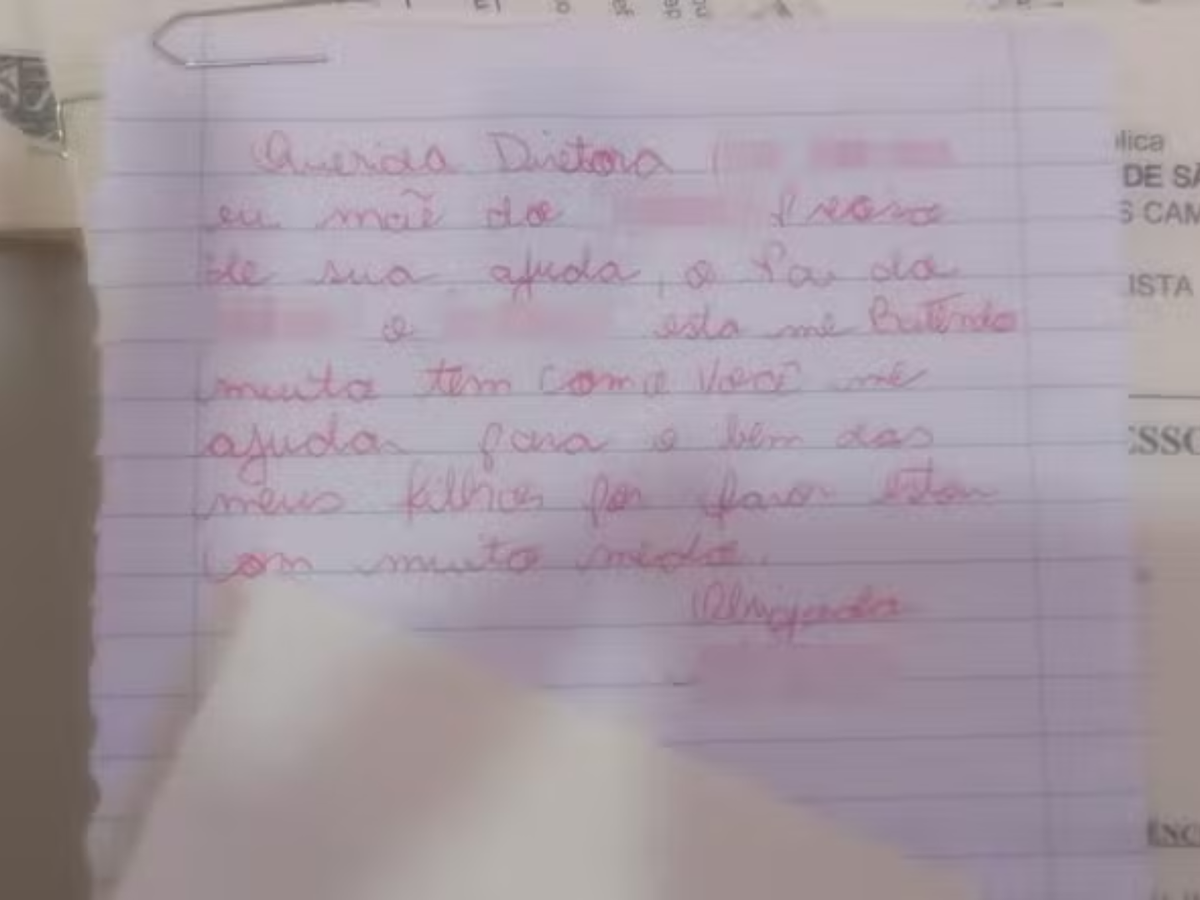 Querida Diretora
eu mãe do Preciso
de sua ajuda, o Pai da
e esta me Batendo
muito tem como Você me
ajudar para o bem dos
meus filhos por favor estou
com muito medo.
Obrigada
lica
DE SÃ
S CAM
ISTA
ESSO